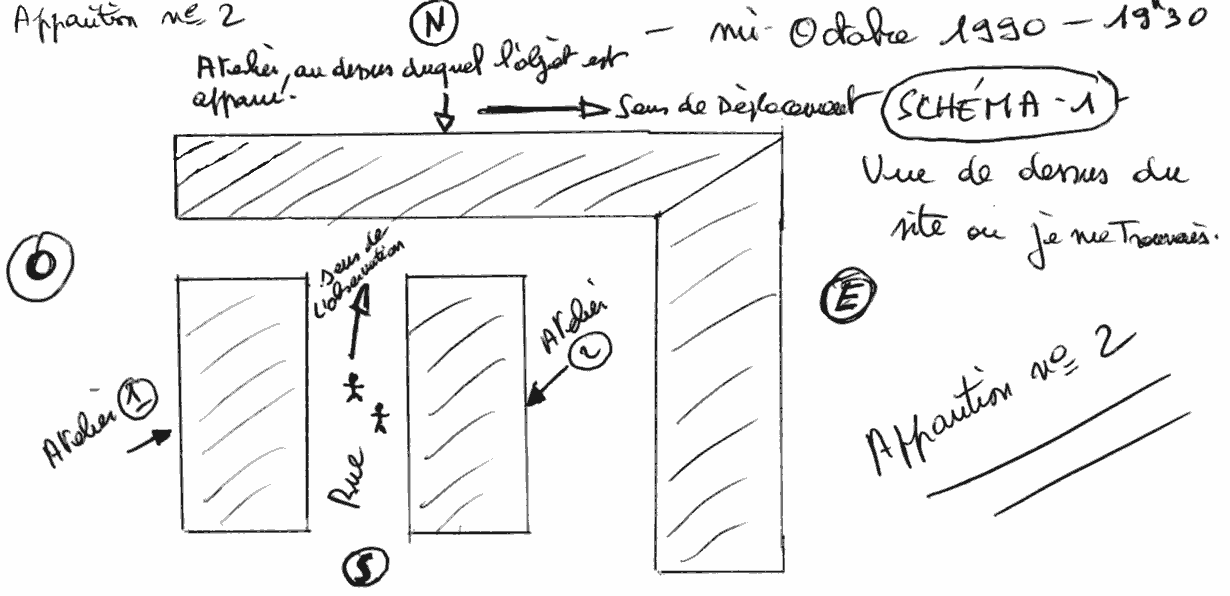 Apparition nº 2
N
— mi-Octobre 1990 — 19h30
Atelier, au dessus duquel l'objet est
apparu.
Sens de Déplacement
SCHÉMA-1
Vue de dessus du
site où je me Trouvais.
O
Sens de
L'observation
E
Atelier
2
Atelier 1
Rue
Apparition nº 2
S